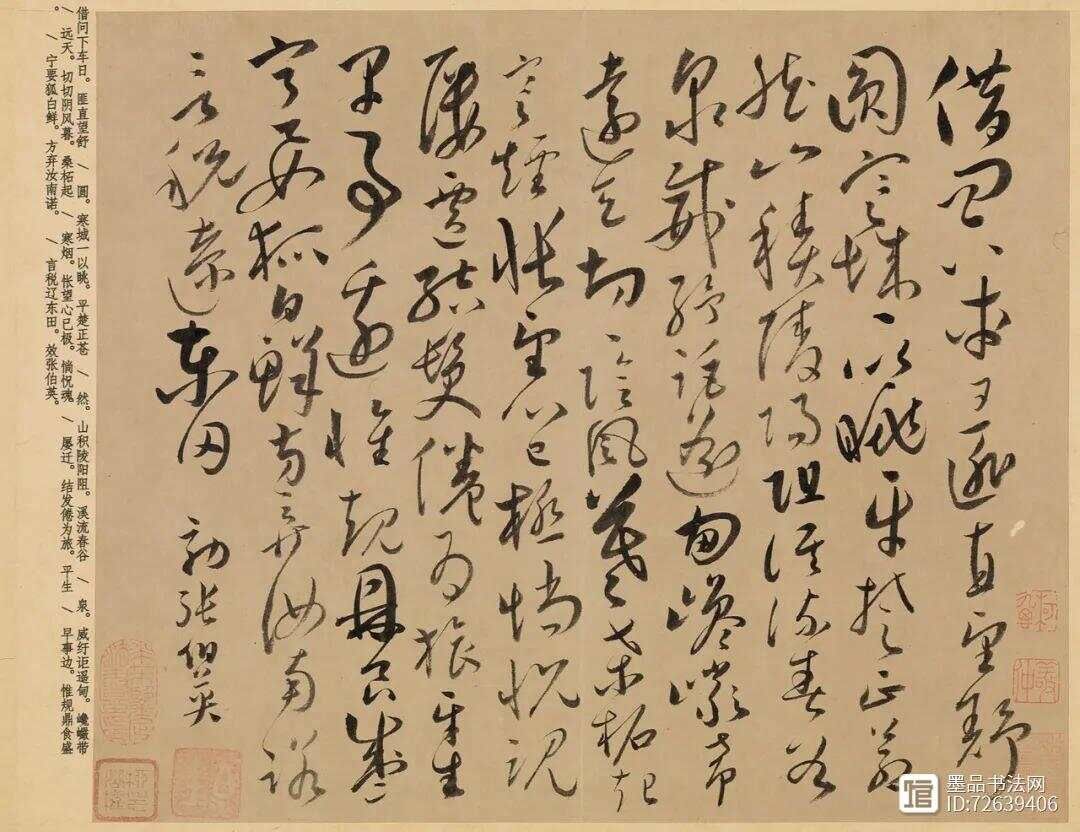 借問下車日匪直望舒
圓寒城一以眺平楚正蒼
然山積陵陽阻溪流春谷
泉威紆詎遙甸巉巘帶
遠天切切陰風暮桑柘起
寒煙悵望心已極惝怳魂
屢遷結髮倦為旅平生
早事邊惟規鼎食盛
寧要狐白鮮方棄汝南諾
言稅遼東田 效張伯英
借问下车日。匪直望舒 / 圆。寒城一以眺。平楚正苍 / 然。山积陵阳阻。溪流春谷 / 泉。威纡讵遥甸。巉巘带
/ 远天。切切阴风暮。桑柘起 / 寒烟。怅望心已极。惝怳魂。/ 屡迁。结发倦为旅。平生 / 早事边。惟规鼎食盛
。/ 宁要狐白鲜。方弃汝南诺。/ 言税辽东田。效张伯英。
墨品书法网
ID:72639406